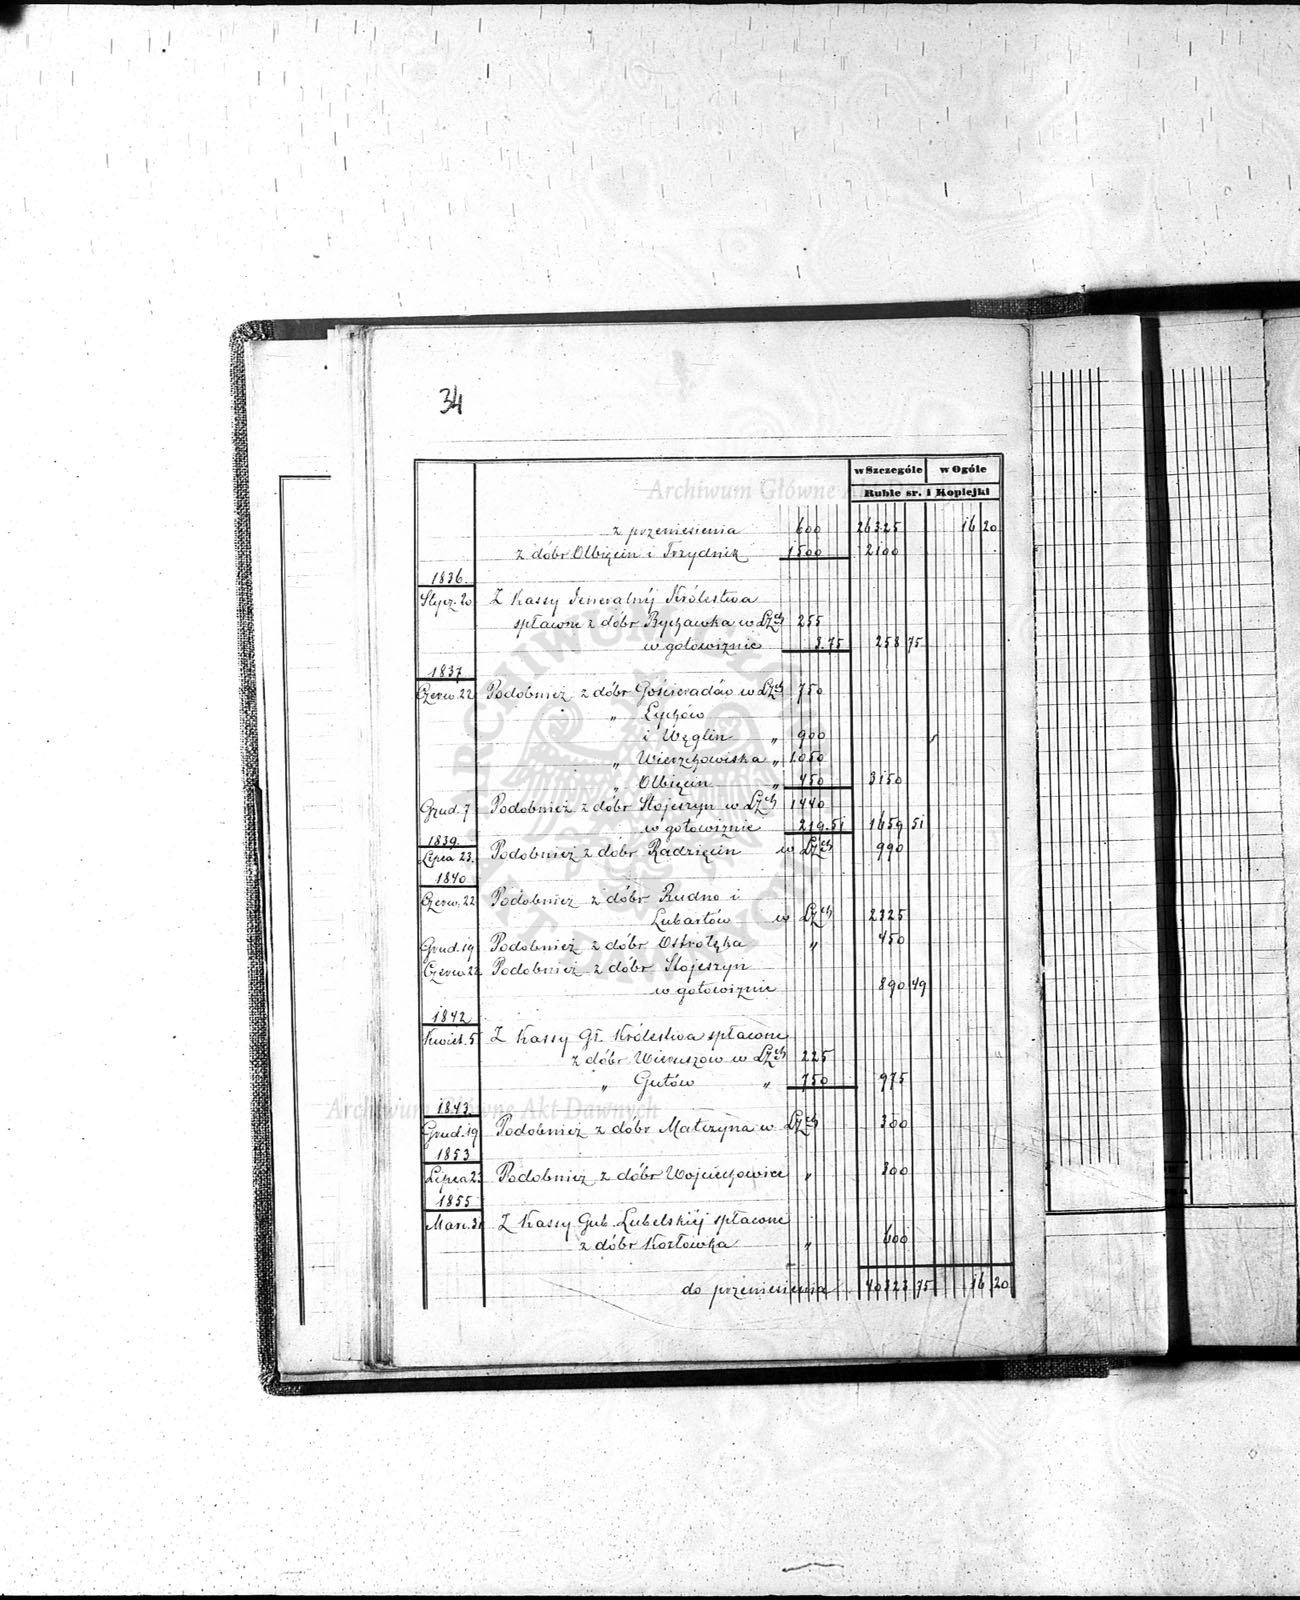 34
w Szczególe w Ogóle
Ruble sr. i Kopiejki
z przeniesienia 600 26325 16 20
z dóbr Olbięcin i Trzydnik 1500 2100
1836.
Stycz. 20 Z Kassy Jeneralnéj Królestwa
spławne z dóbr Bychawka w LZch 255
w gotowiznie 3.75 258 75
1837
Czerw. 22 Podobnież z dóbr Gościeradów w LZch 750
„ Łychów
i Węglin „ 900
„ Wierzchowiska „ 1050
„ Olbięcin „ 450 3150
Grud. 7 Podobnież z dóbr Stojeszyn w LZch 1440
w gotowiznie 219.51 1659 51
1839.
Lipca 23. Podobnież z dóbr Radzięcin w LZch 990
1840
Czerw. 22 Podobnież z dóbr Rudno i
Lubartów w LZch 2325
Grud. 19 Podobnież z dóbr Ostrołęka „ 450
Czerw. 22 Podobnież z dóbr Stojeszyn
w gotowiznie 890 49
1842
Kwiet. 5 Z Kassy Gł. Królestwa spłacone
z dóbr Wieruszow w LZch 225
„ Gutów „ 750 975
1843.
Grud. 19 Podobnież z dóbr Matczyna w LZch 300
1853
Lipca 23 Podobnież z dóbr Wojciechowice „ 300
1855
Marc. 31 Z Kassy Gub. Lubelskiéj spłacone
z dóbr Kozłówka „ 600
do przeniesienia 40323 75 16 20
Archiwum Główne Akt Dawnych